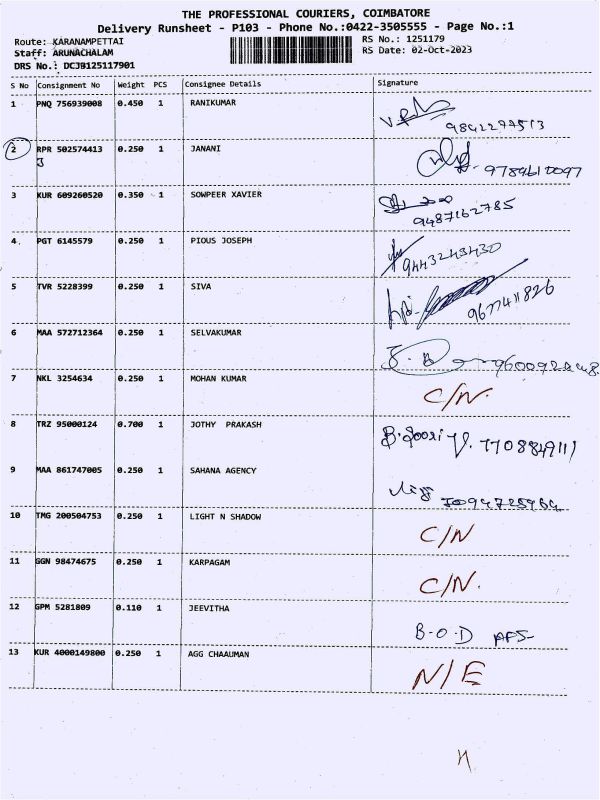 THE PROFESSIONAL COURIERS, COIMBATORE
Delivery Runsheet - P103 - Phone No.:0422-3505555 - Page No.:1
Route: KARANAMPETTAI
RS No.: 1251179
Staff: ARUNACHALAM
RS Date: 02-Oct-2023
DRS No.: DCJB125117901
S No Consignment No Weight PCS Consignee Details Signature
1 PNQ 756939008 0.450 1 RANIKUMAR
2 RPR 502574413 0.250 1 JANANI
J
9789610097
3 KUR 609260520 0.350 1 SOWPEER XAVIER
9487162785
4 PGT 6145579 0.250 1 PIOUS JOSEPH
9443243430
5 TVR 5228399 0.250 1 SIVA
9677411826
6 MAA 572712364 0.250 1 SELVAKUMAR
7 NKL 3254634 0.250 1 MOHAN KUMAR
C/N.
8 TRZ 95000124 0.700 1 JOTHY PRAKASH
9 MAA 861747005 0.250 1 SAHANA AGENCY
10 TMG 200504753 0.250 1 LIGHT N SHADOW
C/N
11 GGN 98474675 0.250 1 KARPAGAM
C/N.
12 GPM 5281809 0.110 1 JEEVITHA
B.O.D
13 KUR 4000149800 0.250 1 AGG CHAAUMAN
N/E